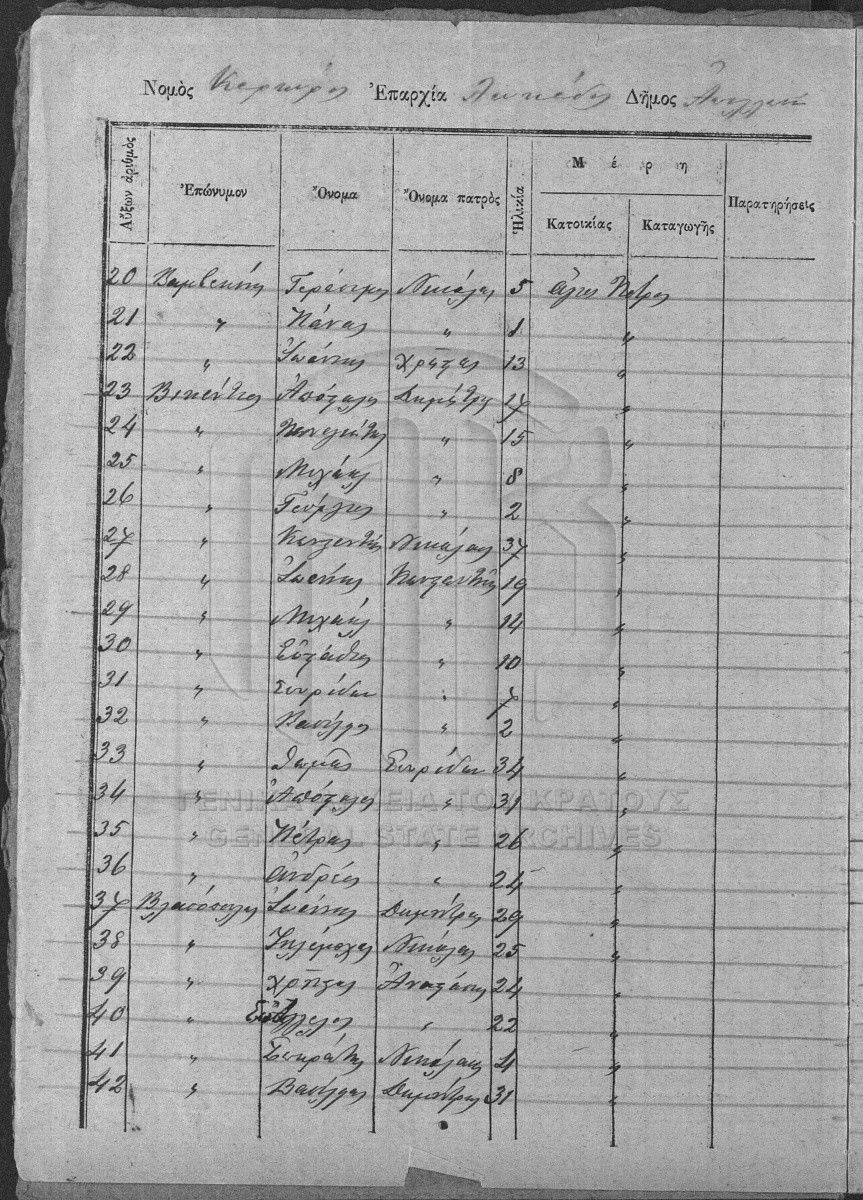 Νομὸς Κερκύρας Ἐπαρχία Λευκάδος Δῆμος
Αὔξων ἀριθμὸς Ἐπώνυμον Ὄνομα Ὄνομα πατρὸς Ἡλικία Μέρη Παρατηρήσεις
Κατοικίας Καταγωγῆς
20 Γεράσιμος Νικόλαος 5 Ἅγιος Πέτρος
21 " Πάνος " 1 "
22 " Ἰωάννης Χρῆστος 13 "
23 Βικέντιος Ἀπόστολος Δημήτριος 17 "
24 " Παναγιώτης " 15 "
25 " Μιχαήλ " 8 "
26 " Γεώργιος " 2 "
27 " Κωνσταντῖνος Νικόλαος 37 "
28 " Ἰωάννης Κωνσταντῖνος 19 "
29 " Μιχαήλ " 14 "
30 " Εὐστάθιος " 10 "
31 " Σπυρίδων " 7 "
32 " Βασίλειος " 2 "
33 " Θωμᾶς Σπυρίδων 34 "
34 " Ἀπόστολος " 31 "
35 " Πέτρος " 26 "
36 " Ἀνδρέας " 24 "
37 Βλασόπουλος Ἰωάννης Δημήτριος 29 "
38 " Τηλέμαχος Νικόλαος 25 "
39 " Χρῆστος Ἀναστάσιος 24 "
40 " " 22 "
41 " Σωκράτης Νικόλαος 4 "
42 " Βασίλειος Δημήτριος 31 "
ΓΕΝΙΚΑ ΑΡΧΕΙΑ ΤΟΥ ΚΡΑΤΟΥΣ
GENERAL STATE ARCHIVES